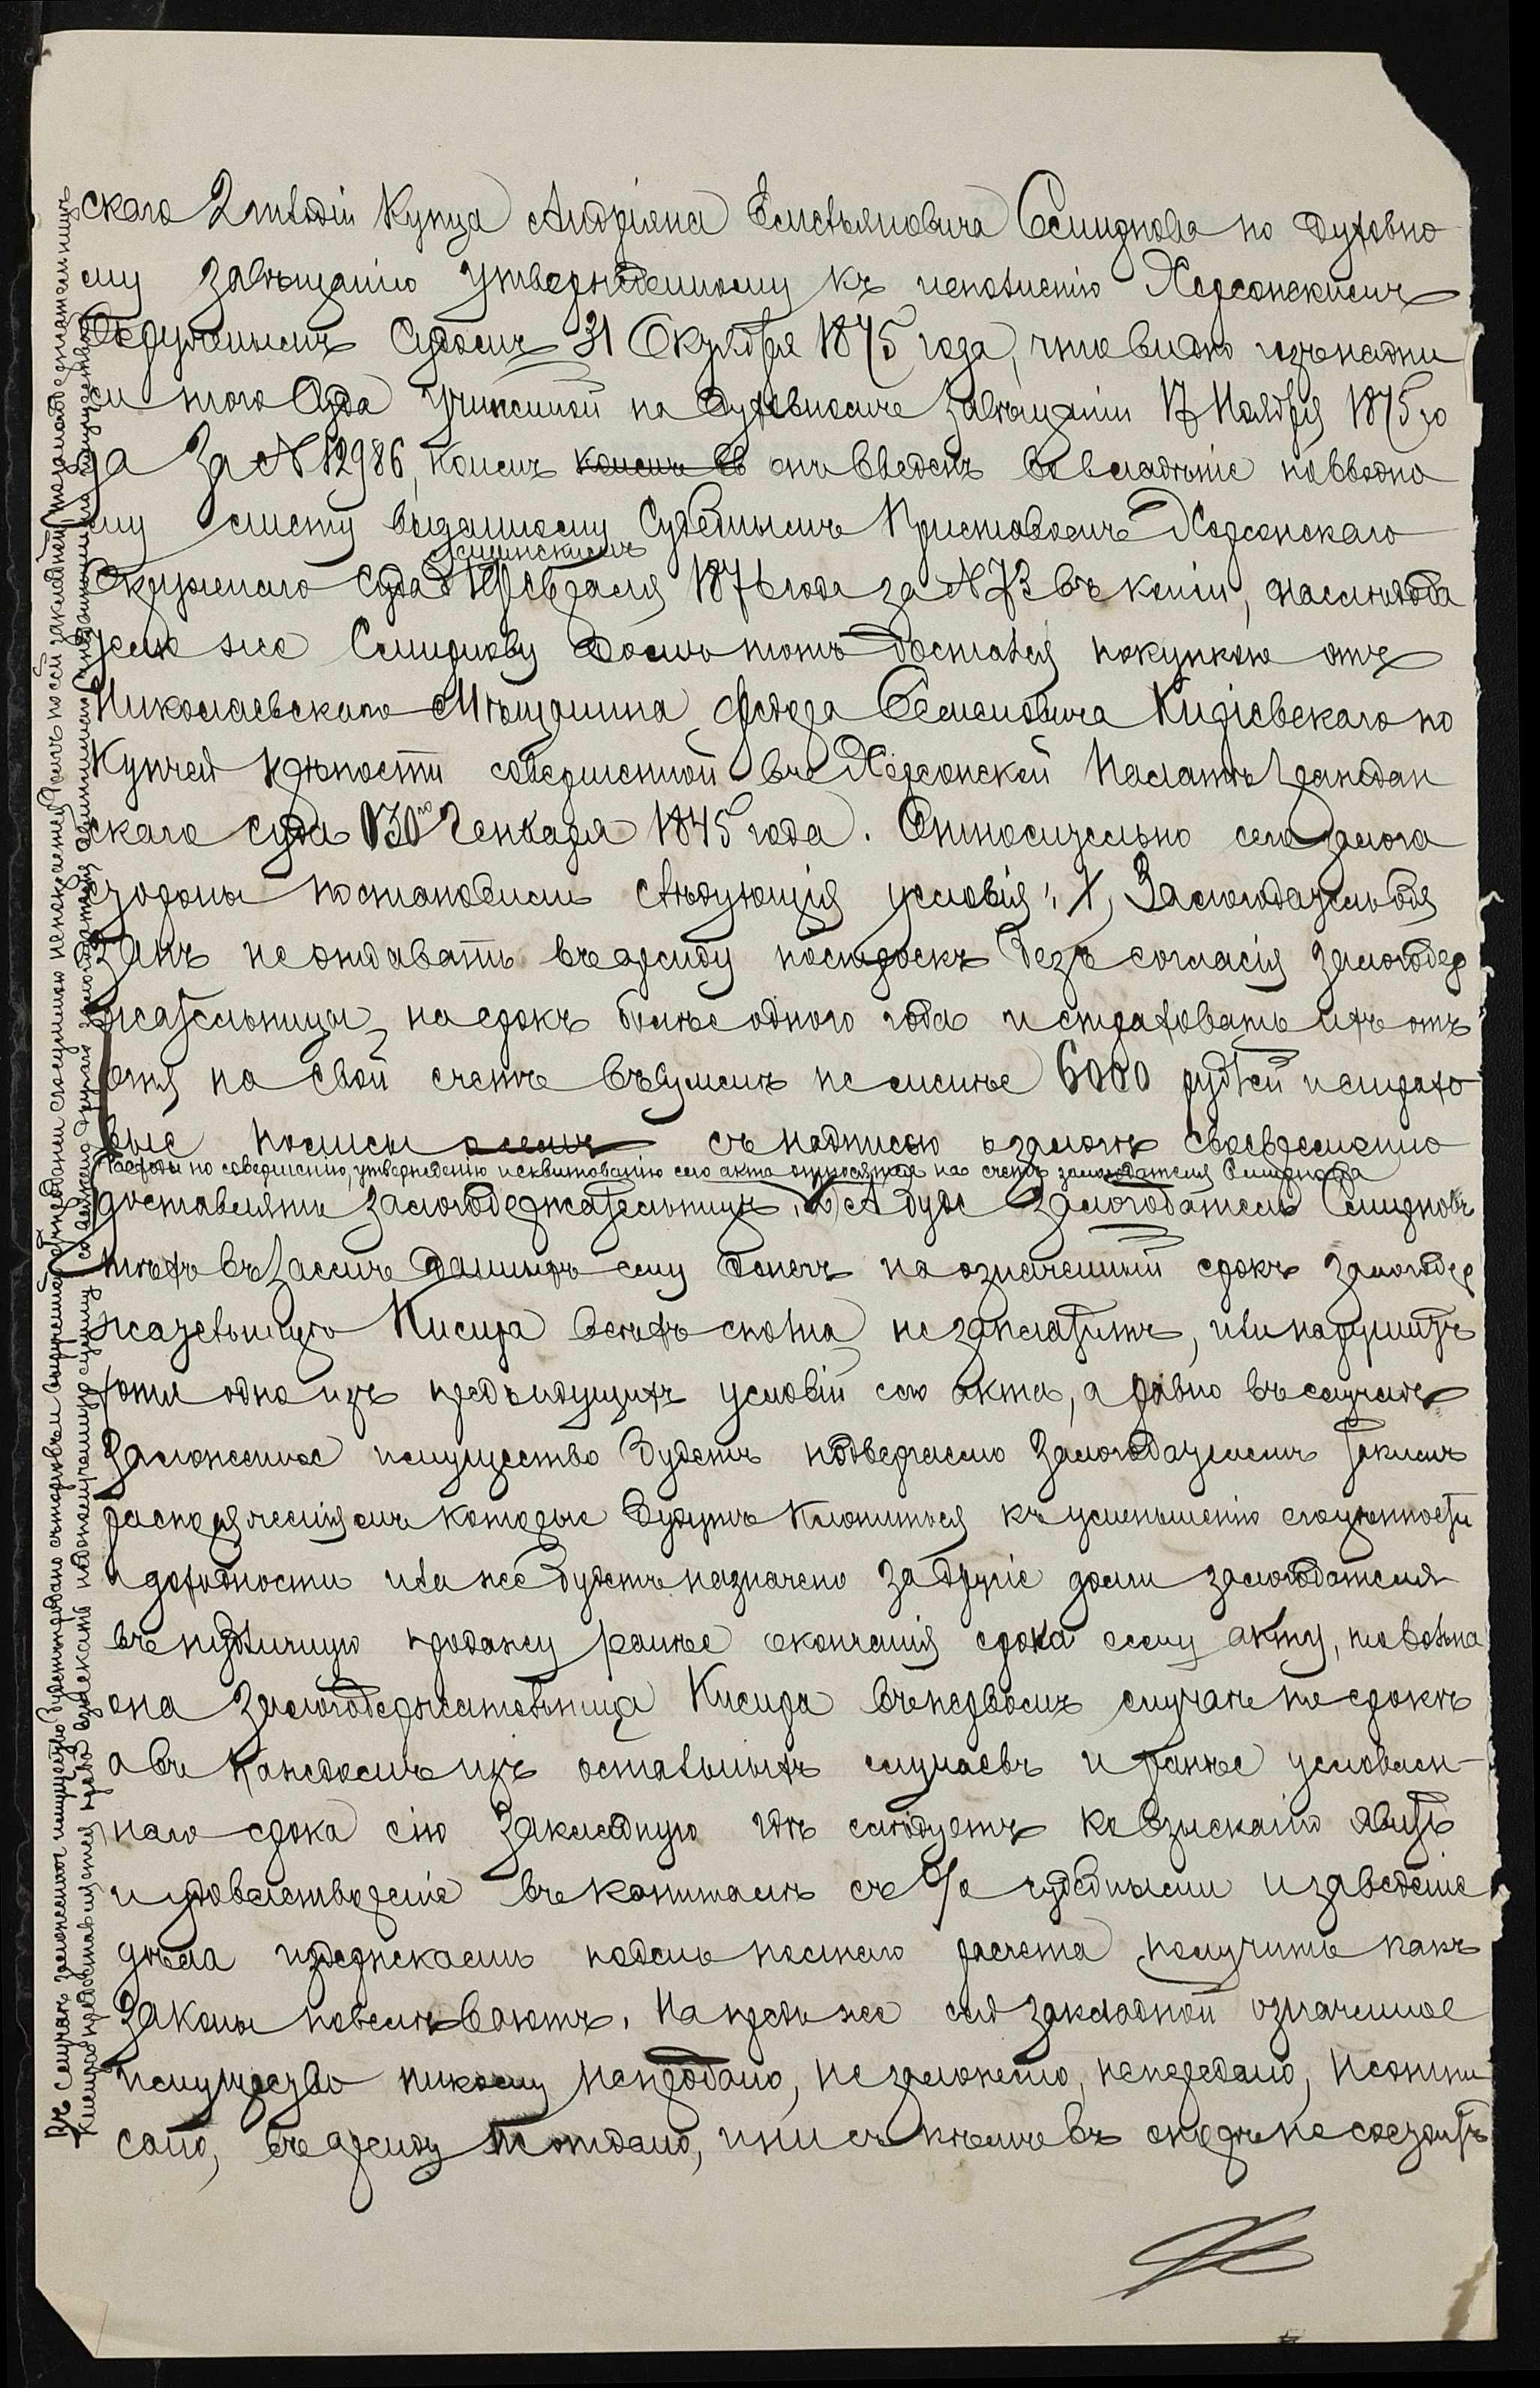 скаго 2 гильдіи Купца Андріяна Емельяновича Смирнова по духовно
му завѣщанію утвержденному къ исполненію Херсонскимъ
Окружнымъ Судомъ 31 Октября 1875 года, что видно изъ надпи
си того Суда учиненной на духовномъ завѣщаніи 17 Ноября 1875 го
да за № 12986, коимъ онъ введенъ во владѣніе по вводно
му листу выданному Судебнымъ Приставомъ Херсонскаго
Окружнаго Суда Февраля 1876 года за № 73 въ копіи, наслѣдода
телю же Смирнову домъ тотъ достался покупкою отъ
Николаевскаго Мѣщанина Федора Семеновича Кидіевскаго по
Купчей крѣпости совершенной въ Херсонской Палатѣ Граждан
скаго суда 30го Генваря 1845 года. Относительно сего залога
стороны постановили слѣдующія условія: 1, Залогодатель обя
занъ не отдавать въ аренду построекъ безъ согласія залогодер
жательницы на срокъ болѣе одного года и страховать ихъ отъ
огня на свой счетъ въ суммѣ не менѣе 6000 рублей и страхо
вые полисы съ надписью о залогѣ своевременно
Расходы по совершенію, утвержденію и сквитованію сего акта относятся на счетъ залогодателя Смирнова
доставлять залогодержательницѣ, 2) А буде залогодатель Смирновъ
тѣхъ въ заемъ данныхъ ему денегъ на означенный срокъ залогодер
жательницѣ Кисира всѣхъ сполна не заплатитъ, или нарушитъ
хотя одно изъ предъидущихъ условій сего акта, а равно въ случаѣ
заложенное имущество будетъ подвергаемо залогодателемъ такимъ
распоряженіямъ которые будутъ клониться къ уменьшенію его цѣнности
и доходности или же будетъ назначено за другіе долги залогодателя
въ публичную продажу ранѣе окончанія срока сему акту, то вольна
она залогодержательница Кисира въ первомъ случаѣ по срокѣ
а въ каждомъ изъ остальныхъ случаевъ и ранѣе условлен-
наго срока сію закладную гдѣ слѣдуетъ ко взысканію явить
и удовлетвореніе въ капиталѣ съ % судебными и за веденіе
дѣла издержками по день полнаго расчета получить какъ
законы повелѣваютъ. Напредь же сей закладной означенное
имущество никому не продано, не заложено, не передано, не отпи
сано, въ аренду не отдано, и ни съ кѣмъ въ спорѣ не состоитъ